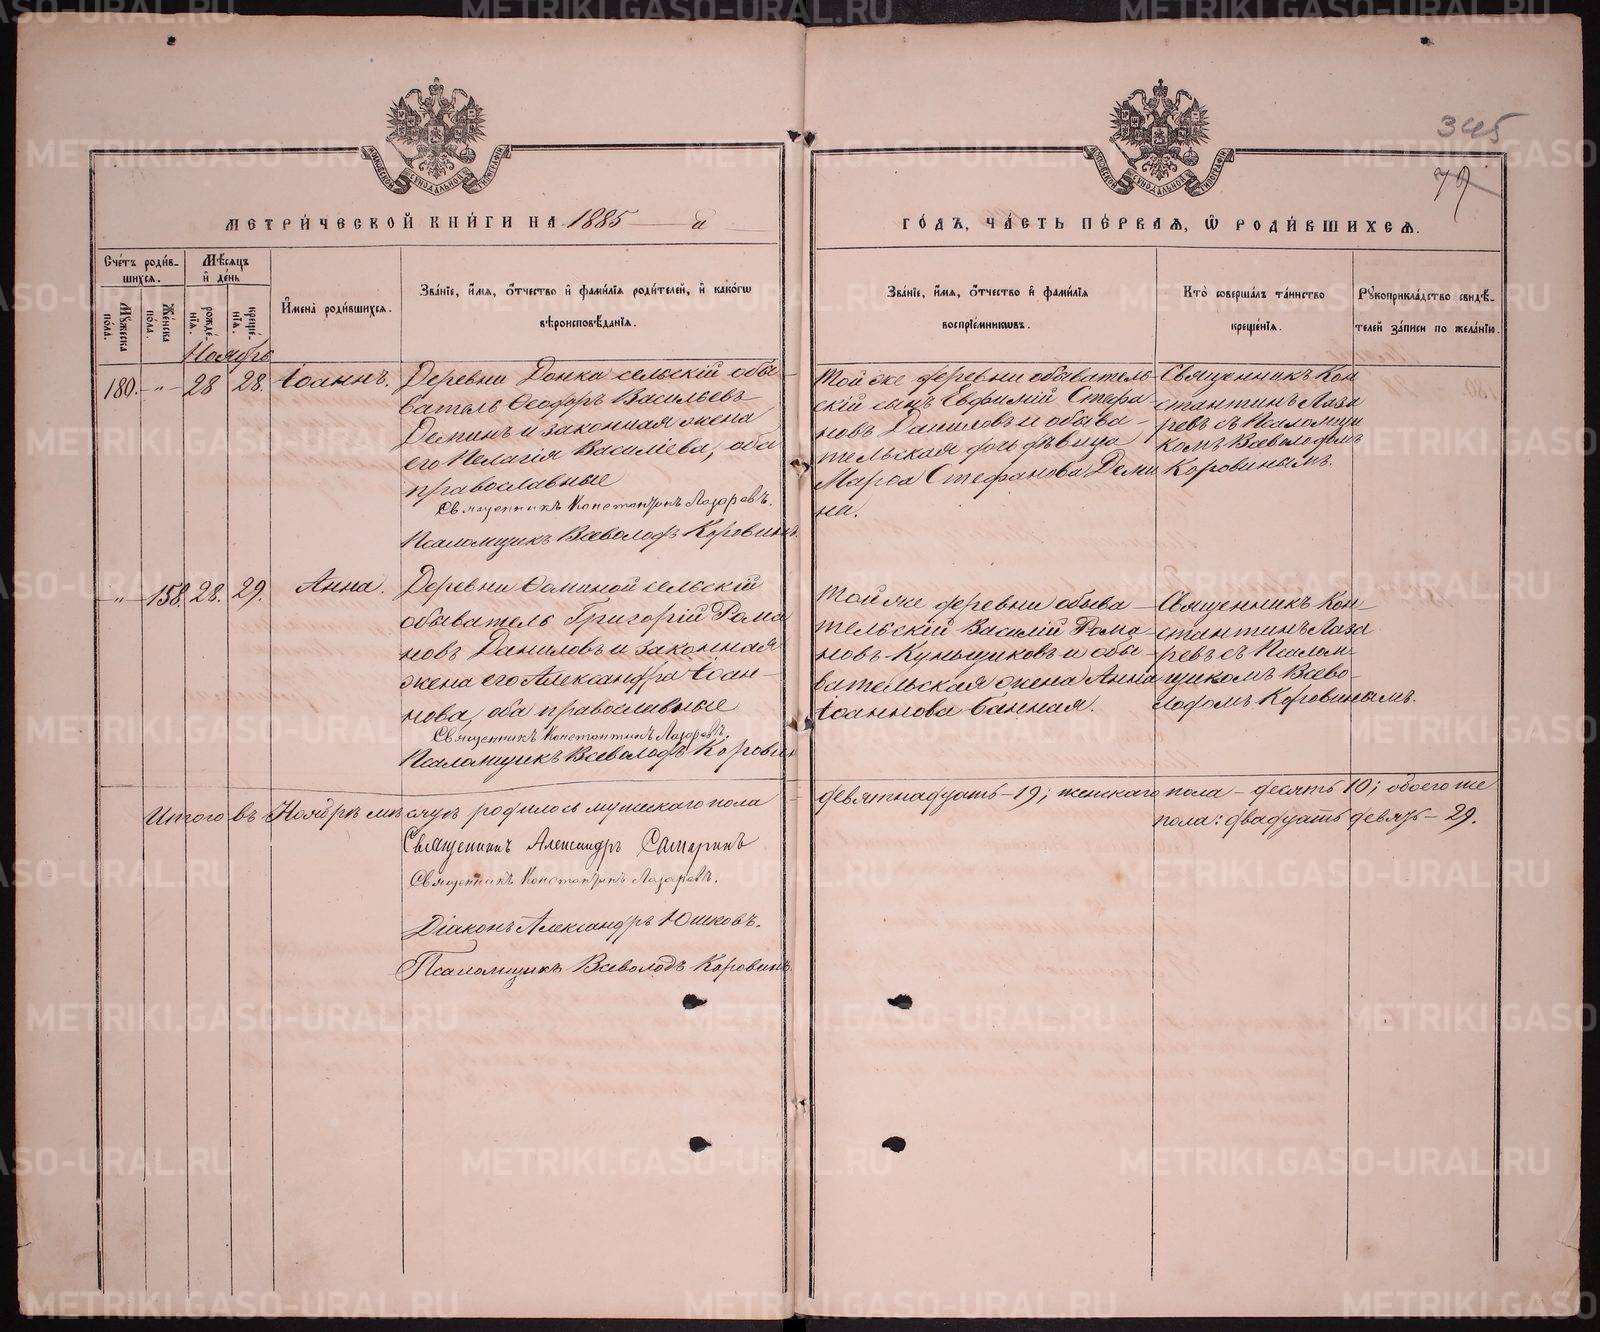 345
79
МОСКОВСКОЙ СѴНОДАЛЬНОЙ ТИПОГРАФІИ
МОСКОВСКОЙ СѴНОДАЛЬНОЙ ТИПОГРАФІИ
МЕТРИ́ЧЕСКОЙ КНИ́ГИ НА 1885 й
ГО́ДЪ, ЧА́СТЬ ПЕ́РВАЯ, Ѡ РОДИ́ВШИХСЯ.
Сче́тъ роди́в-
шихся.
Мꙋжеска пола.
Же́нска пола.
Мѣ́сяцъ
и҆ де́нь
рожде́-
нїя.
креще́-
нїя.
И҆мена̀ роди́вшихся.
Зва́нїе, и҆́мя, ѻ҆́тчество и҆ фами́лїя роди́телей, и҆ како́гѡ
вѣроисповѣ́данїя.
Зва́нїе, и҆́мя, ѻ҆́тчество и҆ фами́лїя
воспрїе́мникѡвъ.
Кто̀ соверша́лъ та́инство
креще́нїя.
Рꙋкоприкла́дство свидѣ́-
телей за́писи по жела́нїю.
Ноябрь
180. - „ - 28 28. Іоаннъ.
Деревни Донка сельскій обы-
ватель Ѳеодоръ Васильевъ
Деминъ и законная жена
его Пелагія Василіева, оба
православные
Священникъ Константинъ Лазаревъ.
Псаломщикъ Всеволодъ Коровинъ.
Той же деревни обыватель-
скій сынъ Евфимій Стефа-
новъ Даниловъ и обыва-
тельская дочь дѣвица
Марѳа Стефанова Деми-
на.
Священникъ Кон-
стантинъ Лаза-
ревъ съ Псаломщи-
комъ Всеволодомъ
Коровинымъ.
- „ - 158. 28. 29. Анна.
Деревни Ѳоминой сельскій
обыватель Григорій Рома-
новъ Даниловъ и законная
жена его Александра Іоан-
нова, оба православные
Священникъ Константинъ Лазаревъ.
Псаломщикъ Всеволодъ Коровинъ
Той же деревни обыва-
тельскій Василій Рома-
новъ Куньщиковъ и обы-
вательская жена Анна
Іоаннова Банная.
Священникъ Кон-
стантинъ Лаза-
ревъ съ Псалом-
щикомъ Всево-
лодомъ Коровинымъ.
Итого въ Ноябрѣ мѣсяцѣ родилось мужескаго пола девятнадцать - 19; женскаго пола - десять 10; обоего же
пола: двадцать девять - 29.
Священникъ Александръ
Священникъ Константинъ Лазаревъ.
Діаконъ Александръ Юшковъ.
Псаломщикъ Всеволодъ Коровинъ
METRIKI.GASO-URAL.RU